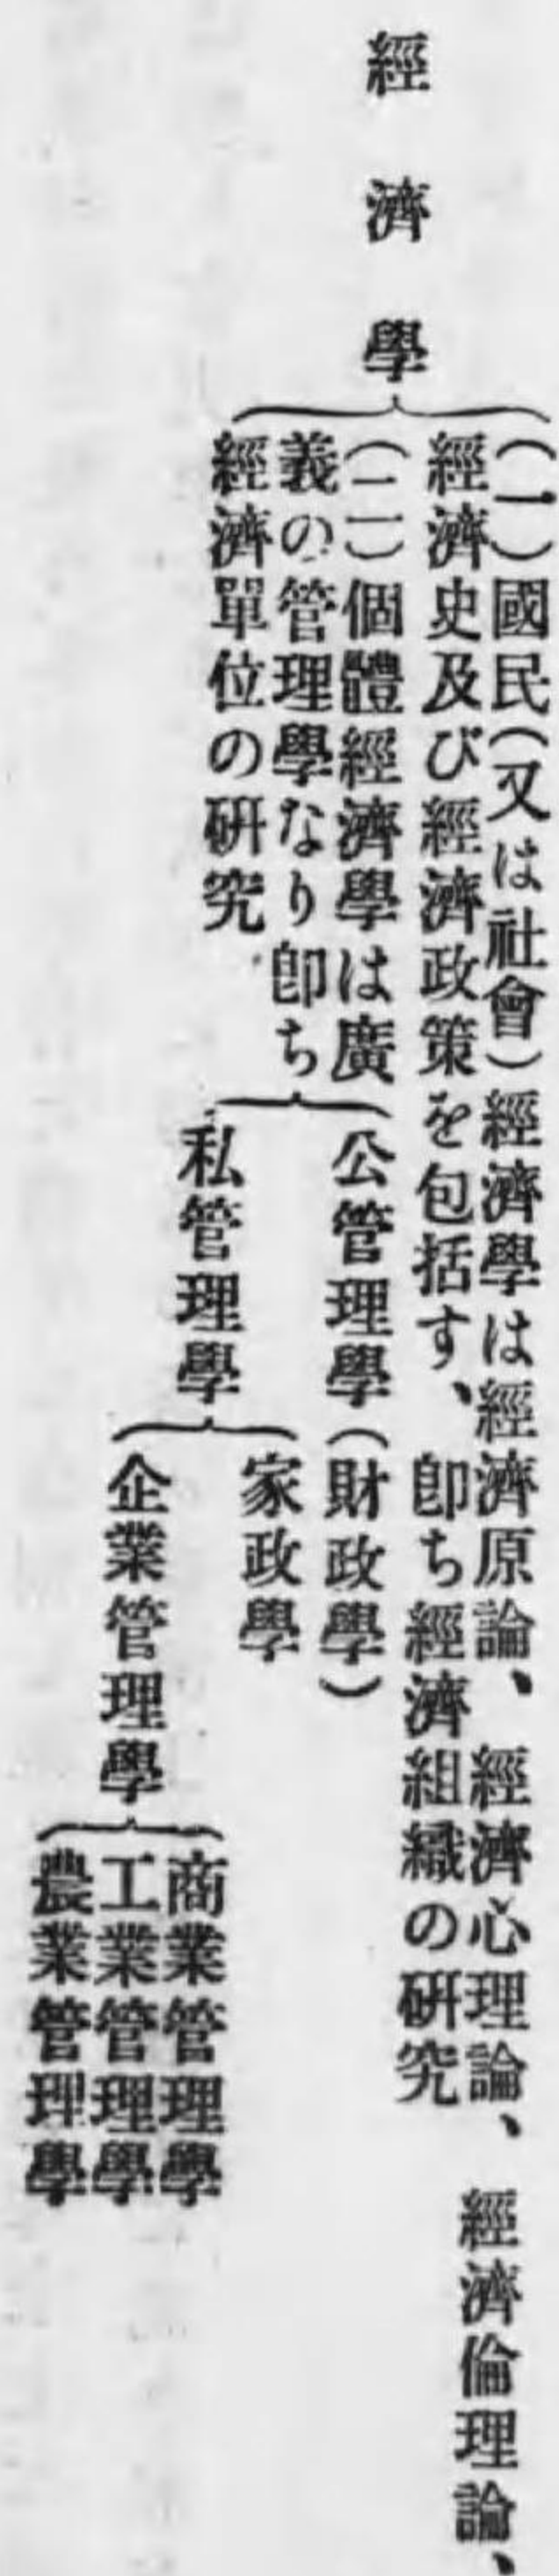 經濟學
(一)國民(又は社會)經濟學は經濟原論、經濟心理論、經濟倫理論、
經濟史及び經濟政策を包括す、卽ち經濟組織の硏究
(二)個體經濟學は廣
義の管理學なり卽ち
經濟單位の硏究
公管理學(財政學)
私管理學
家政學
企業管理學
商業管理學
工業管理學
農業管理學